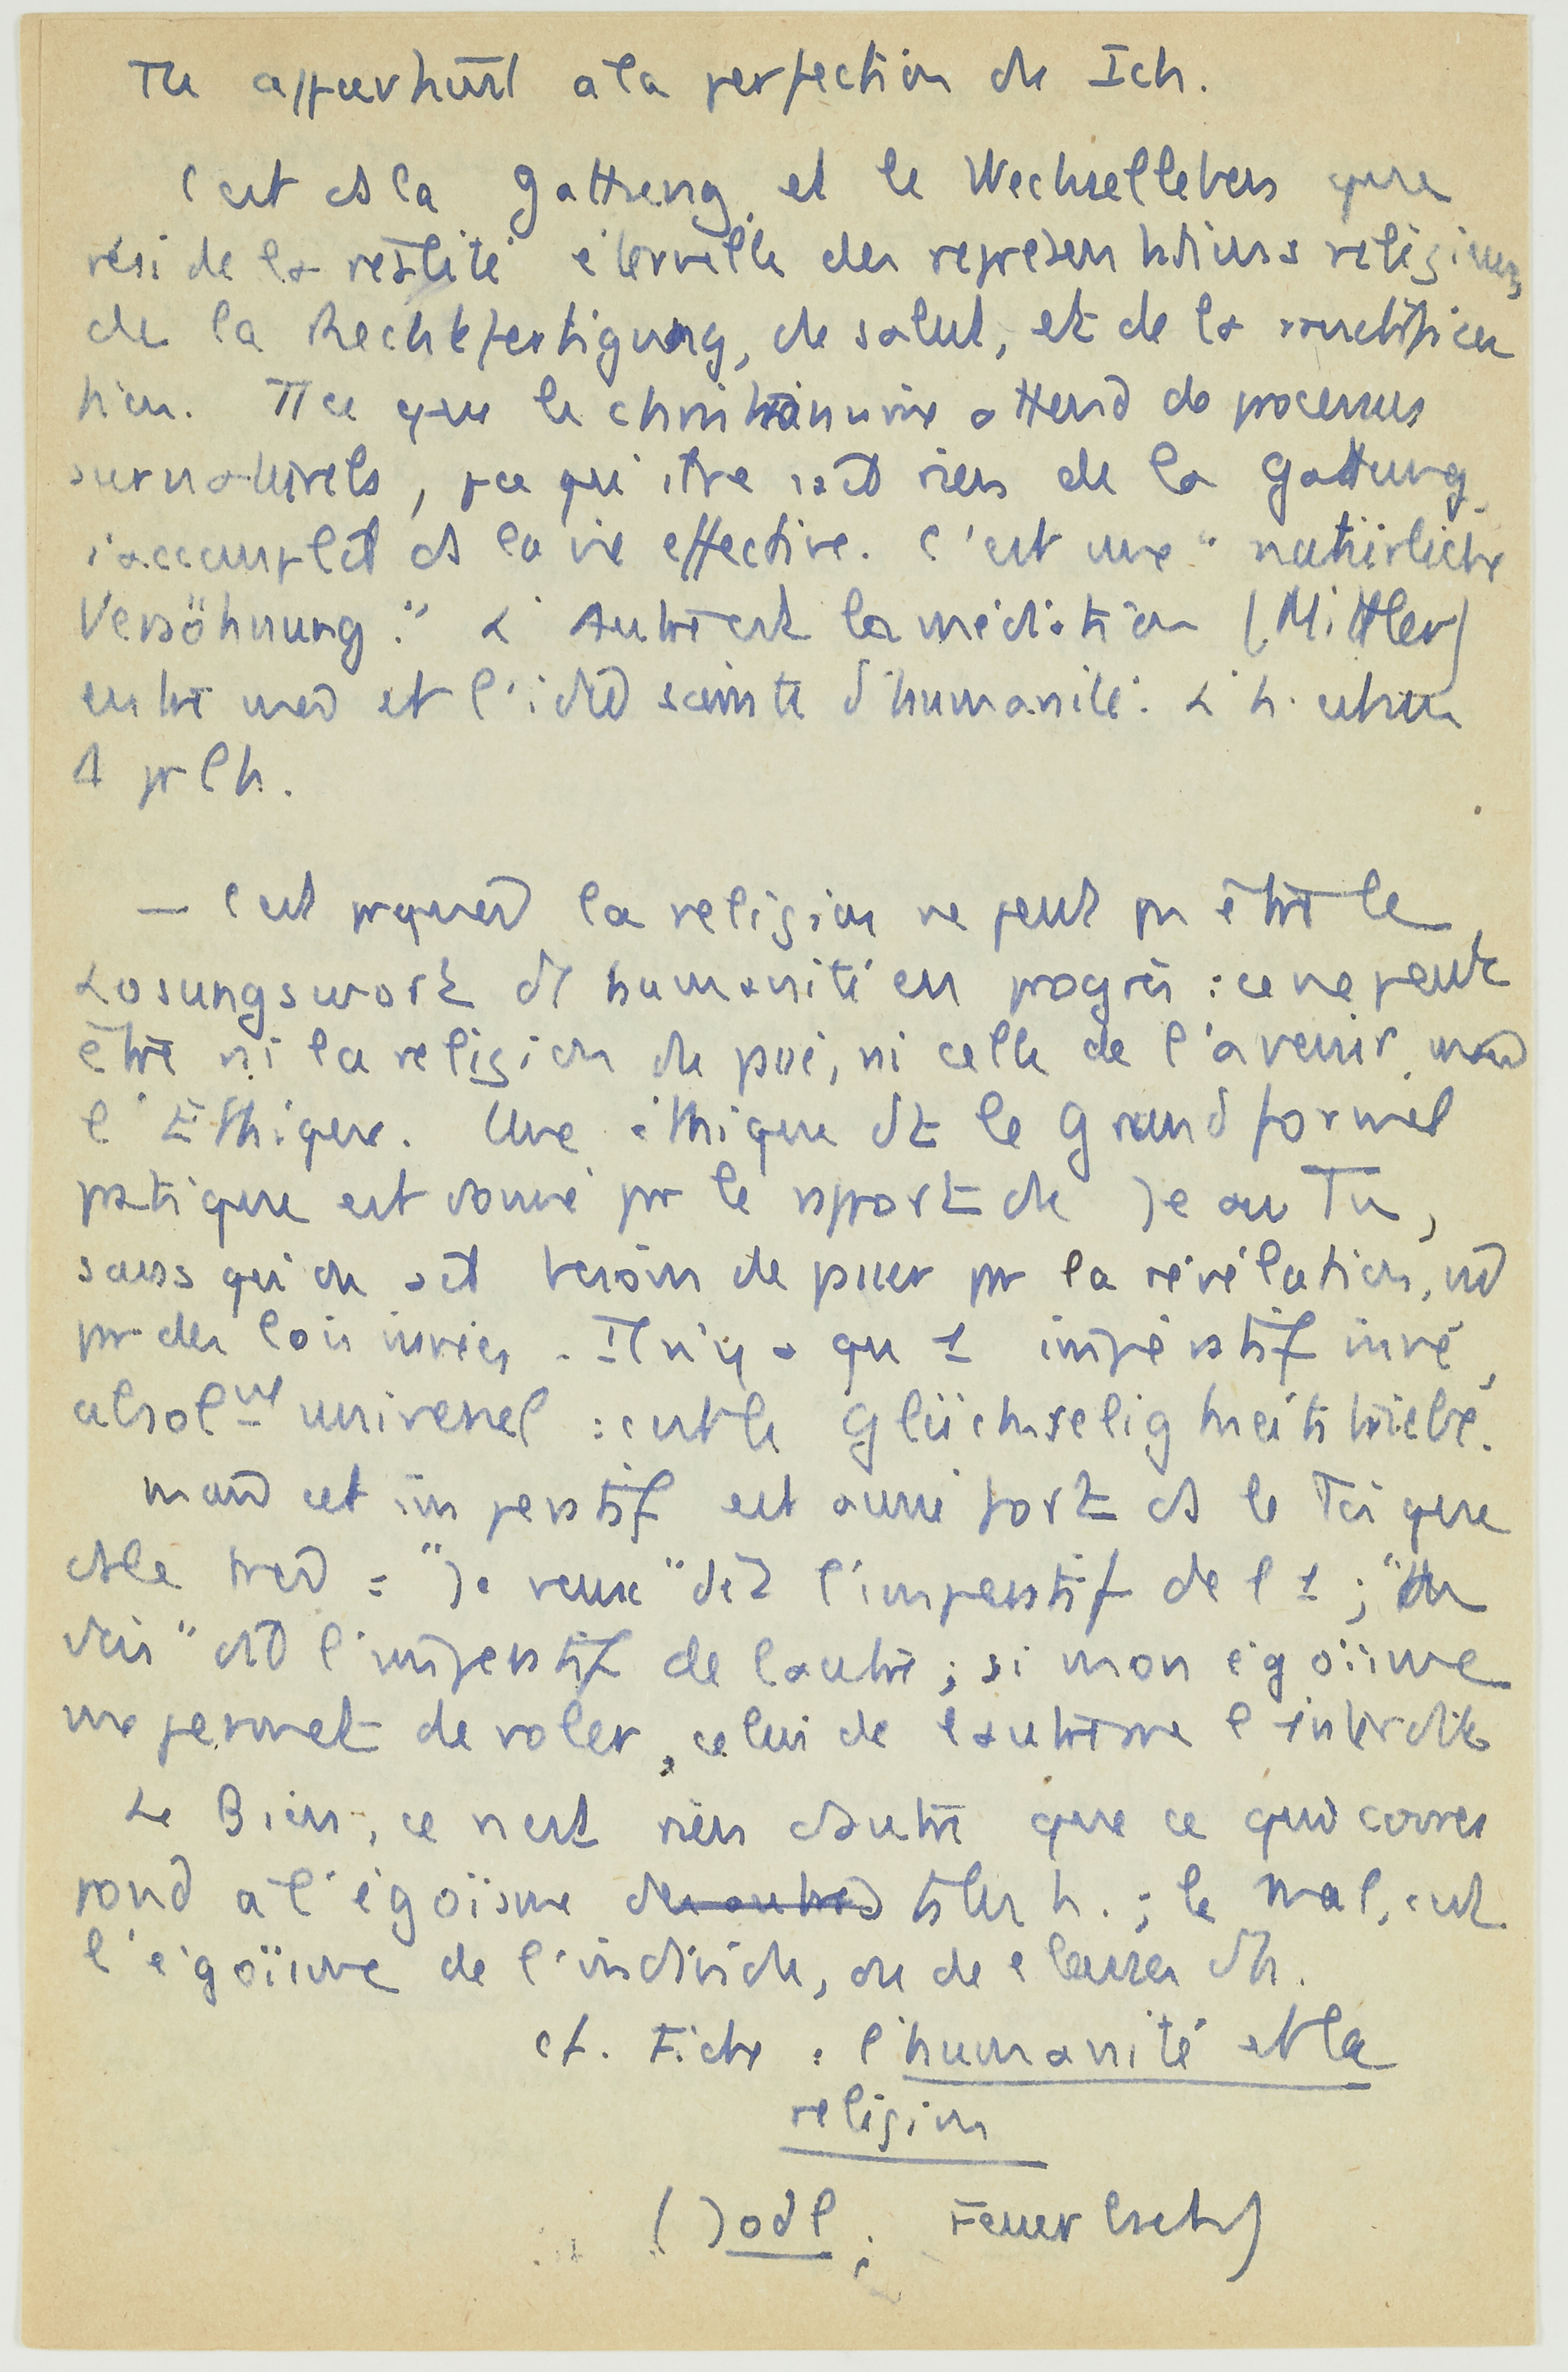 Tu appartient à la perfection de Ich.
C'est ds la Gattung et le Wechselleben que
réside la réalité éternelle des représentations religieuses
de la Rechtfertigung, de salut, et de la sanctifica
tion. Tt ce que le christianisme attend de processus
surnaturels, pce qu'il ne sait rien de la Gattung,
s'accomplit ds la vie effective. C'est une "natürliche
Versöhnung". L'Autre est la médiation (Mittler)
entre moi et l'idée sainte d'humanité. L'h. est un
Δ pr l'h.
— C'est pquoi la religion ne peut pas être le
Losungswort d' humanité en progrès : ce ne peut
être ni la religion du passé, ni celle de l'avenir, mais
l'Ethique. Une éthique dt le Grund formel
pratique est donné pr le rapport de Je au Tu,
sans qu'on ait besoin de passer pr la révélation, ni
pr des lois innées. Il n'y a qu' 1 impératif inné,
absolᵐᵗ universel : c'est le Glückseligkeitstriebe.
Mais cet impératif est aussi fort ds le Toi que
ds le moi : "Je veux" dit l'impératif de l' 1 ; "tu
dois" dit l'impératif de l'autre ; si mon égoïsme
me permet de voler, celui de l'autre me l'interdit
Le Bien, ce n'est rien d'autre que ce qui corres
pond à l'égoïsme des autres ts les h. ; le Mal, c'est
l'égoïsme de l'individu, ou de classes d'h.
cf. Fiche : l'humanité et la
religion
(Jodl ; Feuerbach)